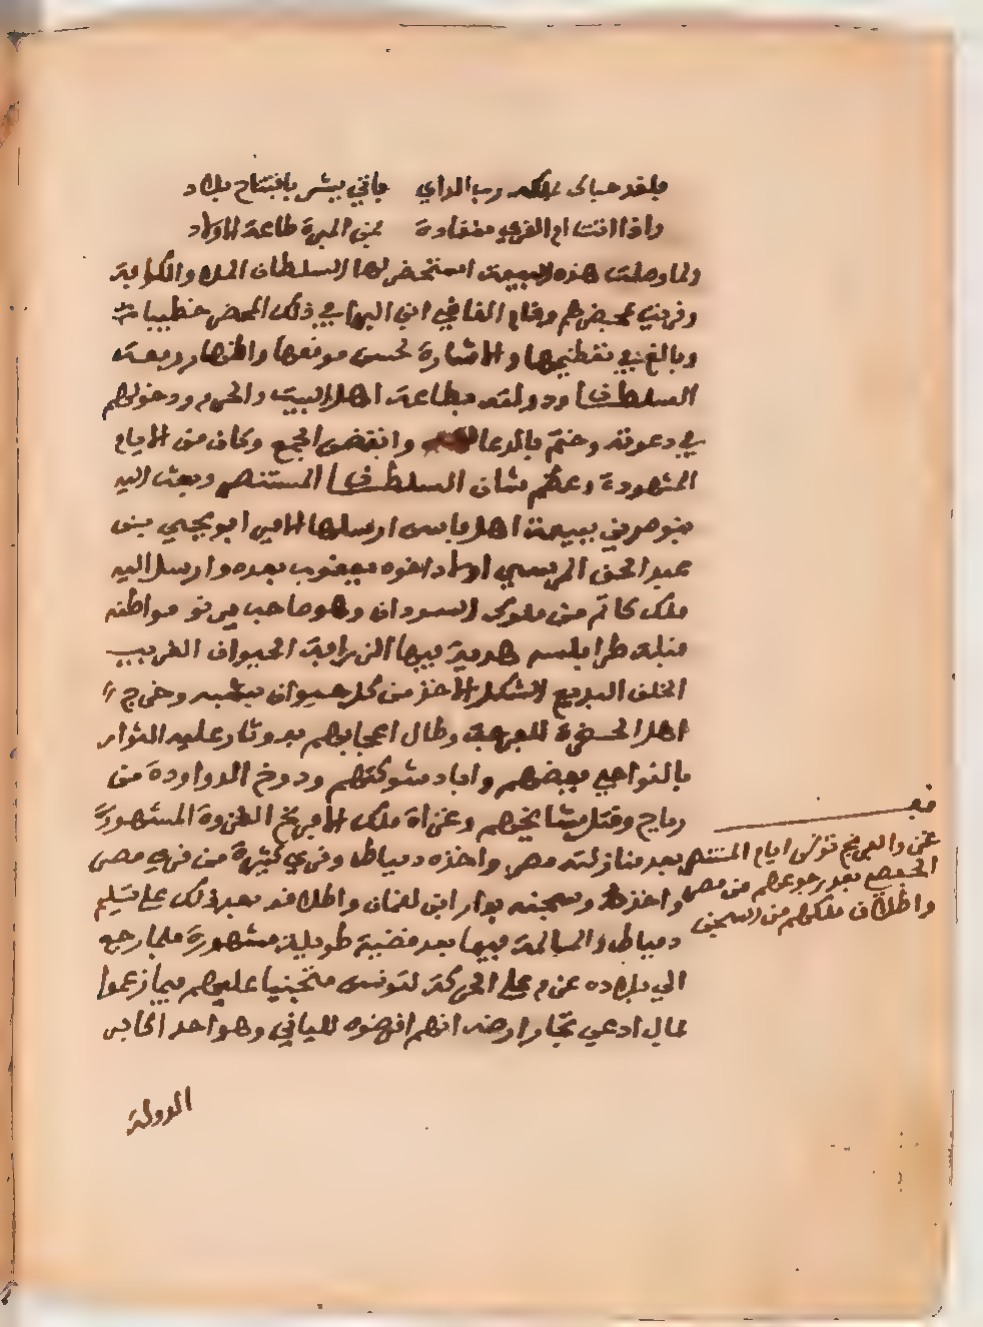 فلقد حباك بملكه رب الراي     ياتي يبشر بافتتاح بلاد
واذا اتت ام القرى منقادة     فمن المبرة طاعة الاولاد
ولما وصلت هذه البيعة استحضر لها السلطان الملا والكافة
وقريت بمحضرهم وقام القاضي ابن البرا في ذلك المحضر خطيبا
وبالغ في تعظيمها والاشارة لحسن موقعها واظهار رفعة
السلطان ودولته بطاعة اهل البيت والحرم ودخولهم
في دعوته وختم بالدعا وانقضى الجمع وكان من الايام
المشهودة وعظم شان السلطان المستنصر وبعث اليه
بنو مرين ببيعة اهل فاس ارسلها الامير ابو يحيى بن
عبد الحق المريني اولا واخوه يعقوب بعده وارسل اليه
ملك كانم من ملوك السودان وهو صاحب برنو مواطنه
قبلة طرابلس هدية فيها الزرافة الحيوان الغريب
الخلق البديع الشكل الاخذ من كل حيوان بشبه وخرج
اهل الحضرة للفرجة وطال اعجابهم به وثار عليه الثوار
بالنواحي بعضهم واباد شوكتهم ودوخ الدواودة من
رياح وقتل مشايخهم وغزاه ملك الافرنج الغزوة المشهورة
بعد منازلته مصر واخذه دمياط وقرى كثيرة من قرى مصر
واخذه وسجنه بدار ابن لقمان واطلاقه بعد ذلك على تسليم
دمياط والمسالمة فيها بعد قضية طويلة مشهورة فلما رجع
الى بلاده عزم على الحركة لتونس متجنيا عليهم فيما زعموا
بمال ادعى تجار ارضه انهم اقرضوه للياني وهو احد اكابر
الدولة
قف
غزو الفرنج تونس ايام المستنصر
الحفصي بعد رجوعهم من مصر
واطلاق ملكهم من السجن